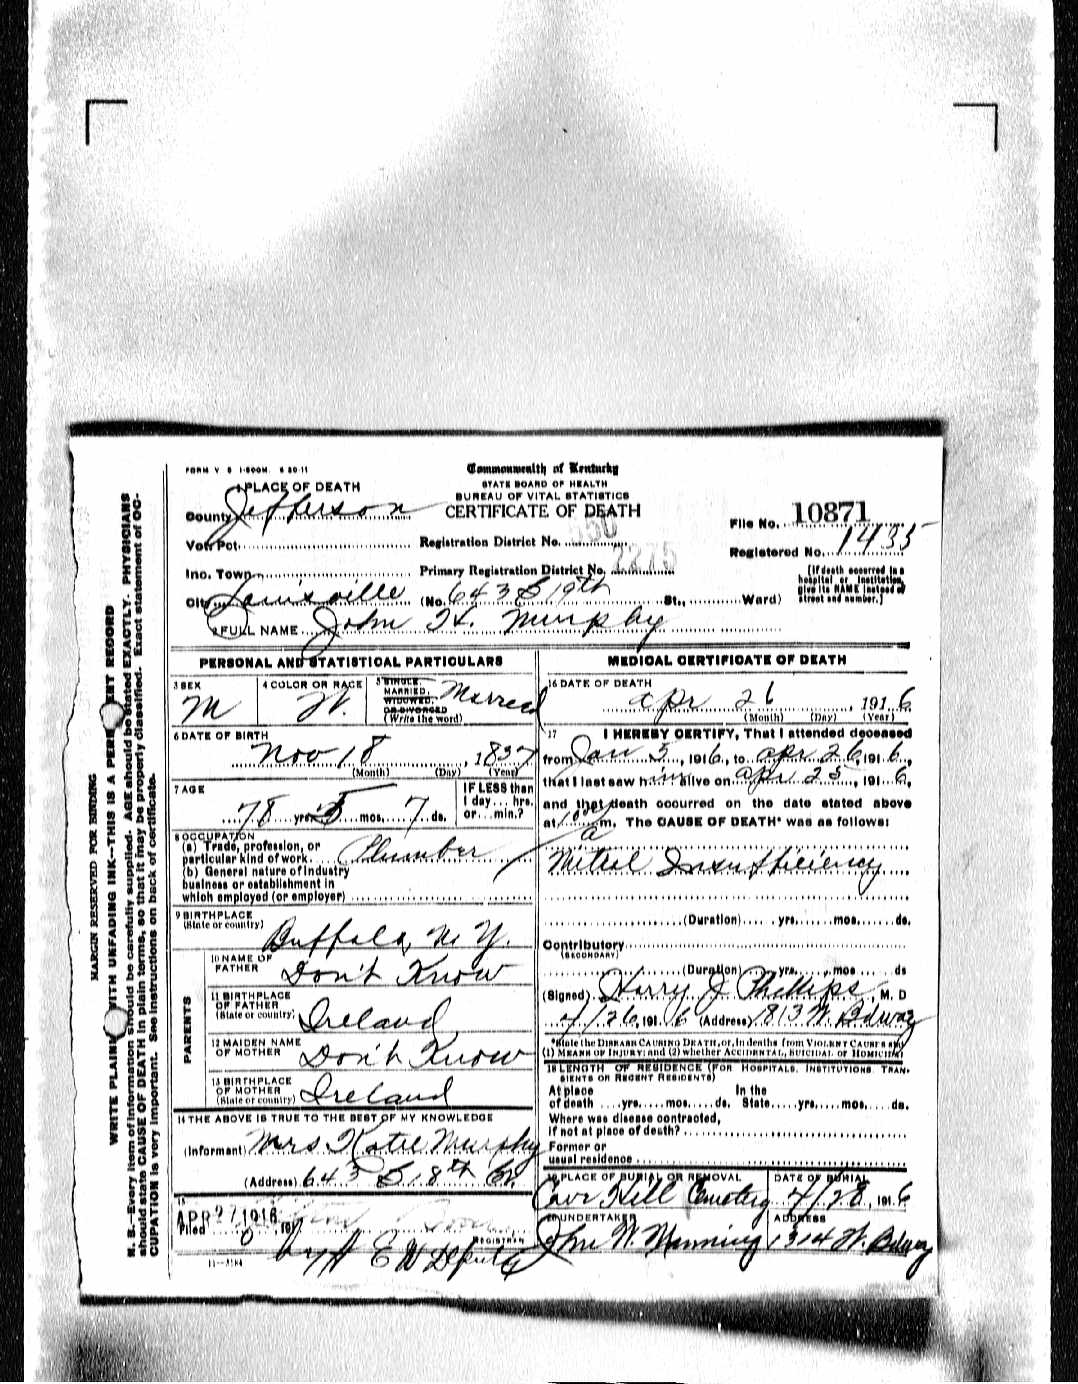 FORM V S 1-500M. 6 20 11
Commonwealth of Kentucky
STATE BOARD OF HEALTH
BUREAU OF VITAL STATISTICS
CERTIFICATE OF DEATH
1 PLACE OF DEATH
County Jefferson
Vot. Pct.
Inc. Town
City Louisville (No. 643 S 19th St., Ward)
Registration District No. 550
Primary Registration District No. 2275
File No. 10871
Registered No. 1435
[If death occurred in a
hospital or institution,
give its NAME instead of
street and number.]
2 FULL NAME John H. Murphy
PERSONAL AND STATISTICAL PARTICULARS
3 SEX
M
4 COLOR OR RACE
W.
5 SINGLE,
MARRIED,
WIDOWED,
OR DIVORCED
(Write the word)
Married
6 DATE OF BIRTH
Nov 18, 1837
(Month) (Day) (Year)
7 AGE
78 yrs. 5 mos. 7 ds.
IF LESS than
1 day... hrs.
or... min.?
8 OCCUPATION
(a) Trade, profession, or
particular kind of work. Plumber
(b) General nature of industry
business or establishment in
which employed (or employer)
9 BIRTHPLACE
(State or country)
Buffalo, N. Y.
PARENTS
10 NAME OF
FATHER
Don't Know
11 BIRTHPLACE
OF FATHER
(State or country)
Ireland
12 MAIDEN NAME
OF MOTHER
Don't Know
13 BIRTHPLACE
OF MOTHER
(State or country)
Ireland
14 THE ABOVE IS TRUE TO THE BEST OF MY KNOWLEDGE
(Informant) Mrs Katie Murphy
(Address) 643 S 18th St
15
APR 27 1916
Filed , 191
REGISTRAR
by H E W Deputy
11-3184
MEDICAL CERTIFICATE OF DEATH
16 DATE OF DEATH
Apr 26, 1916
(Month) (Day) (Year)
17 I HEREBY CERTIFY, That I attended deceased
from Jan 5, 1916, to Apr 26, 1916,
that I last saw him alive on Apr 25, 1916,
and that death occurred on the date stated above
at 10 a m. The CAUSE OF DEATH* was as follows:
Mitral Insufficiency
(Duration) yrs. mos. ds.
Contributory
(SECONDARY)
(Duration) yrs. mos. ds
(Signed) Harry J Phillips, M. D
4/26, 1916 (Address) 1813 W. Bdway
*State the DISEASE CAUSING DEATH, or, in deaths from VIOLENT CAUSES state
(1) MEANS OF INJURY; and (2) whether ACCIDENTAL, SUICIDAL or HOMICIDAL
18 LENGTH OF RESIDENCE (FOR HOSPITALS, INSTITUTIONS, TRAN-
SIENTS OR RECENT RESIDENTS)
At place In the
of death yrs. mos. ds. State yrs. mos. ds.
Where was disease contracted,
if not at place of death?
Former or
usual residence
19 PLACE OF BURIAL OR REMOVAL
Cave Hill Cemetery
DATE OF BURIAL
4/28, 1916
20 UNDERTAKER
John W. Manning
ADDRESS
1314 W. Bdway
MARGIN RESERVED FOR BINDING
WRITE PLAINLY WITH UNFADING INK—THIS IS A PERMANENT RECORD
N. B.—Every item of information should be carefully supplied. AGE should be stated EXACTLY. PHYSICIANS
should state CAUSE OF DEATH in plain terms, so that it may be properly classified. Exact statement of OC-
CUPATION is very important. See instructions on back of certificate.